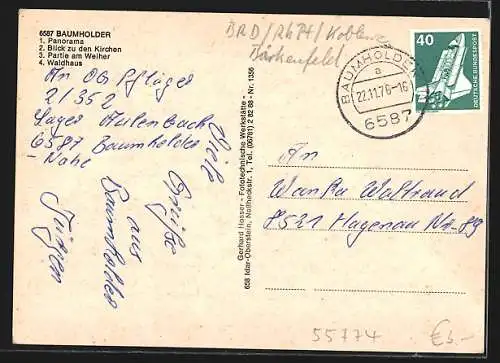 6587 BAUMHOLDER
1. Panorama
2. Blick zu den Kirchen
3. Partie am Weiher
4. Waldhaus
BRD/RhPf/Koblenz
Birkenfeld
An OG Pflüger
21/352
Lager Aulenbach
6587 Baumholder
-Nahe
Viele
Grüße
aus
Baumholder
Jürgen
Gerhard Hosser - Fototechnische Werkstätte -
658 Idar-Oberstein, Nallheckstr. 1, Tel. (06781) 2 82 88 - Nr. 1356
BAUMHOLDER
a
22.11.76-16
6587
40
DEUTSCHE BUNDESPOST
An
Waltraud
8531 Hagenau Nr. 89
55774
€3.-